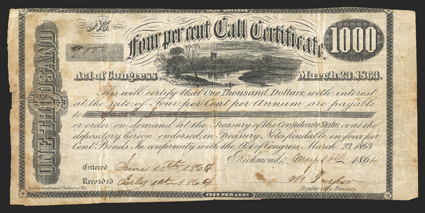 No.
Four per cent Call Certificate.
1000
Act of Congress
March 23, 1863.
ONE THOUSAND
This will certify that One Thousand Dollars, with interest
at the rate of Four per Cent per Annum are payable to
or order on demand at the Treasury of the Confederate States or at the
depository hereon endorsed in Treasury Notes fundable in four per
Cent. Bonds. In conformity with the Act of Congress, March 23 1863
Richmond, 1864
Entered 1864
Recorded 1864
Register of the Treasury.
FOUR PER CENT